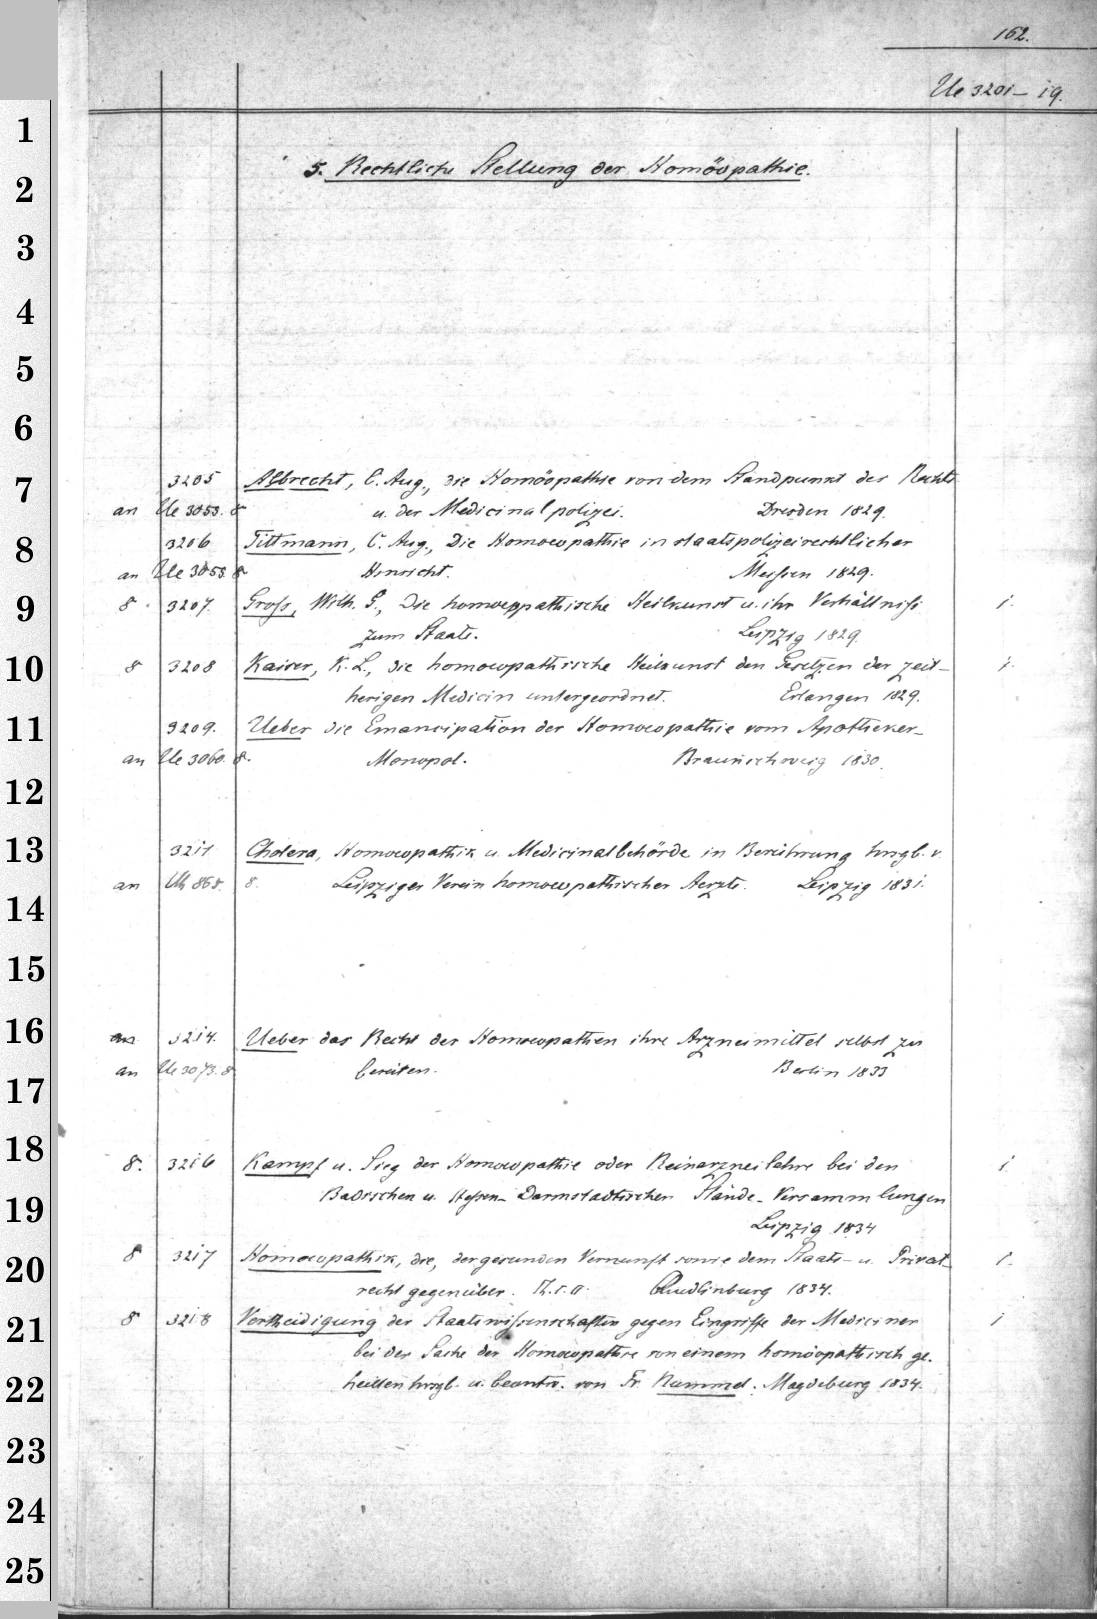 162.
Ue 3201- 19.
5. Rechtliche Stellung der Homöopathie.
3205 Albrecht, C. Aug., die Homöopathie von dem Standpunkt des Rechts
an Ue 3053. 8 u. der Medicinalpolizei. Dresden 1829.
3206 Tittmann, C. Aug., Die Homoeopathie in staatspolizeirechtlicher
an Ue 3053 8. Hinsicht. Meissen 1829.
8. 3207. Gross, Wilh. G., Die homoeopathische Heilkunst u. ihr Verhältniss 1.
zum Staate. Leipzig 1829.
8 3208 Kaiser, K. L., die homoeopathische Heilkunst den Gesetzen der zeit- 1.
herigen Medicin untergeordnet. Erlangen 1829.
3209. Ueber die Emancipation der Homoeopathie vom Apotheker-
an Ue 3060. 8. Monopol. Braunschweig 1830.
3211 Cholera, Homoeopathik u. Medicinalbehörde in Berührung hrsgb. v.
an 868. 8. Leipziger Verein homoeopathischer Aerzte. Leipzig 1831.
an 3214. Ueber das Recht der Homoeopathen ihre Arzneimittel selbst zu
an Ue 3073. 8. bereiten. Berlin 1833
8. 3216 Kampf u. Sieg der Homoeopathie oder Reinarzneilehre bei den 1
Badischen u. Hessen-Darmstadtischen Stände-Versammlungen
Leipzig 1834
8 3217 Homoeopathik, die, der gesunden Vernunft sowie dem Staats- u. Privat- 1.
recht gegenüber. Th. I. II. Quedlinburg 1834.
8 3218 Vertheidigung der Staatswissenschaften gegen Eingriffe der Mediciner 1
bei der Sache der Homoeopathie von einem homöopathisch ge-
heilten hrsgb. u. beantw. von Fr. Rummel. Magdeburg 1834.
1
2
3
4
5
6
7
8
9
10
11
12
13
14
15
16
17
18
19
20
21
22
23
24
25